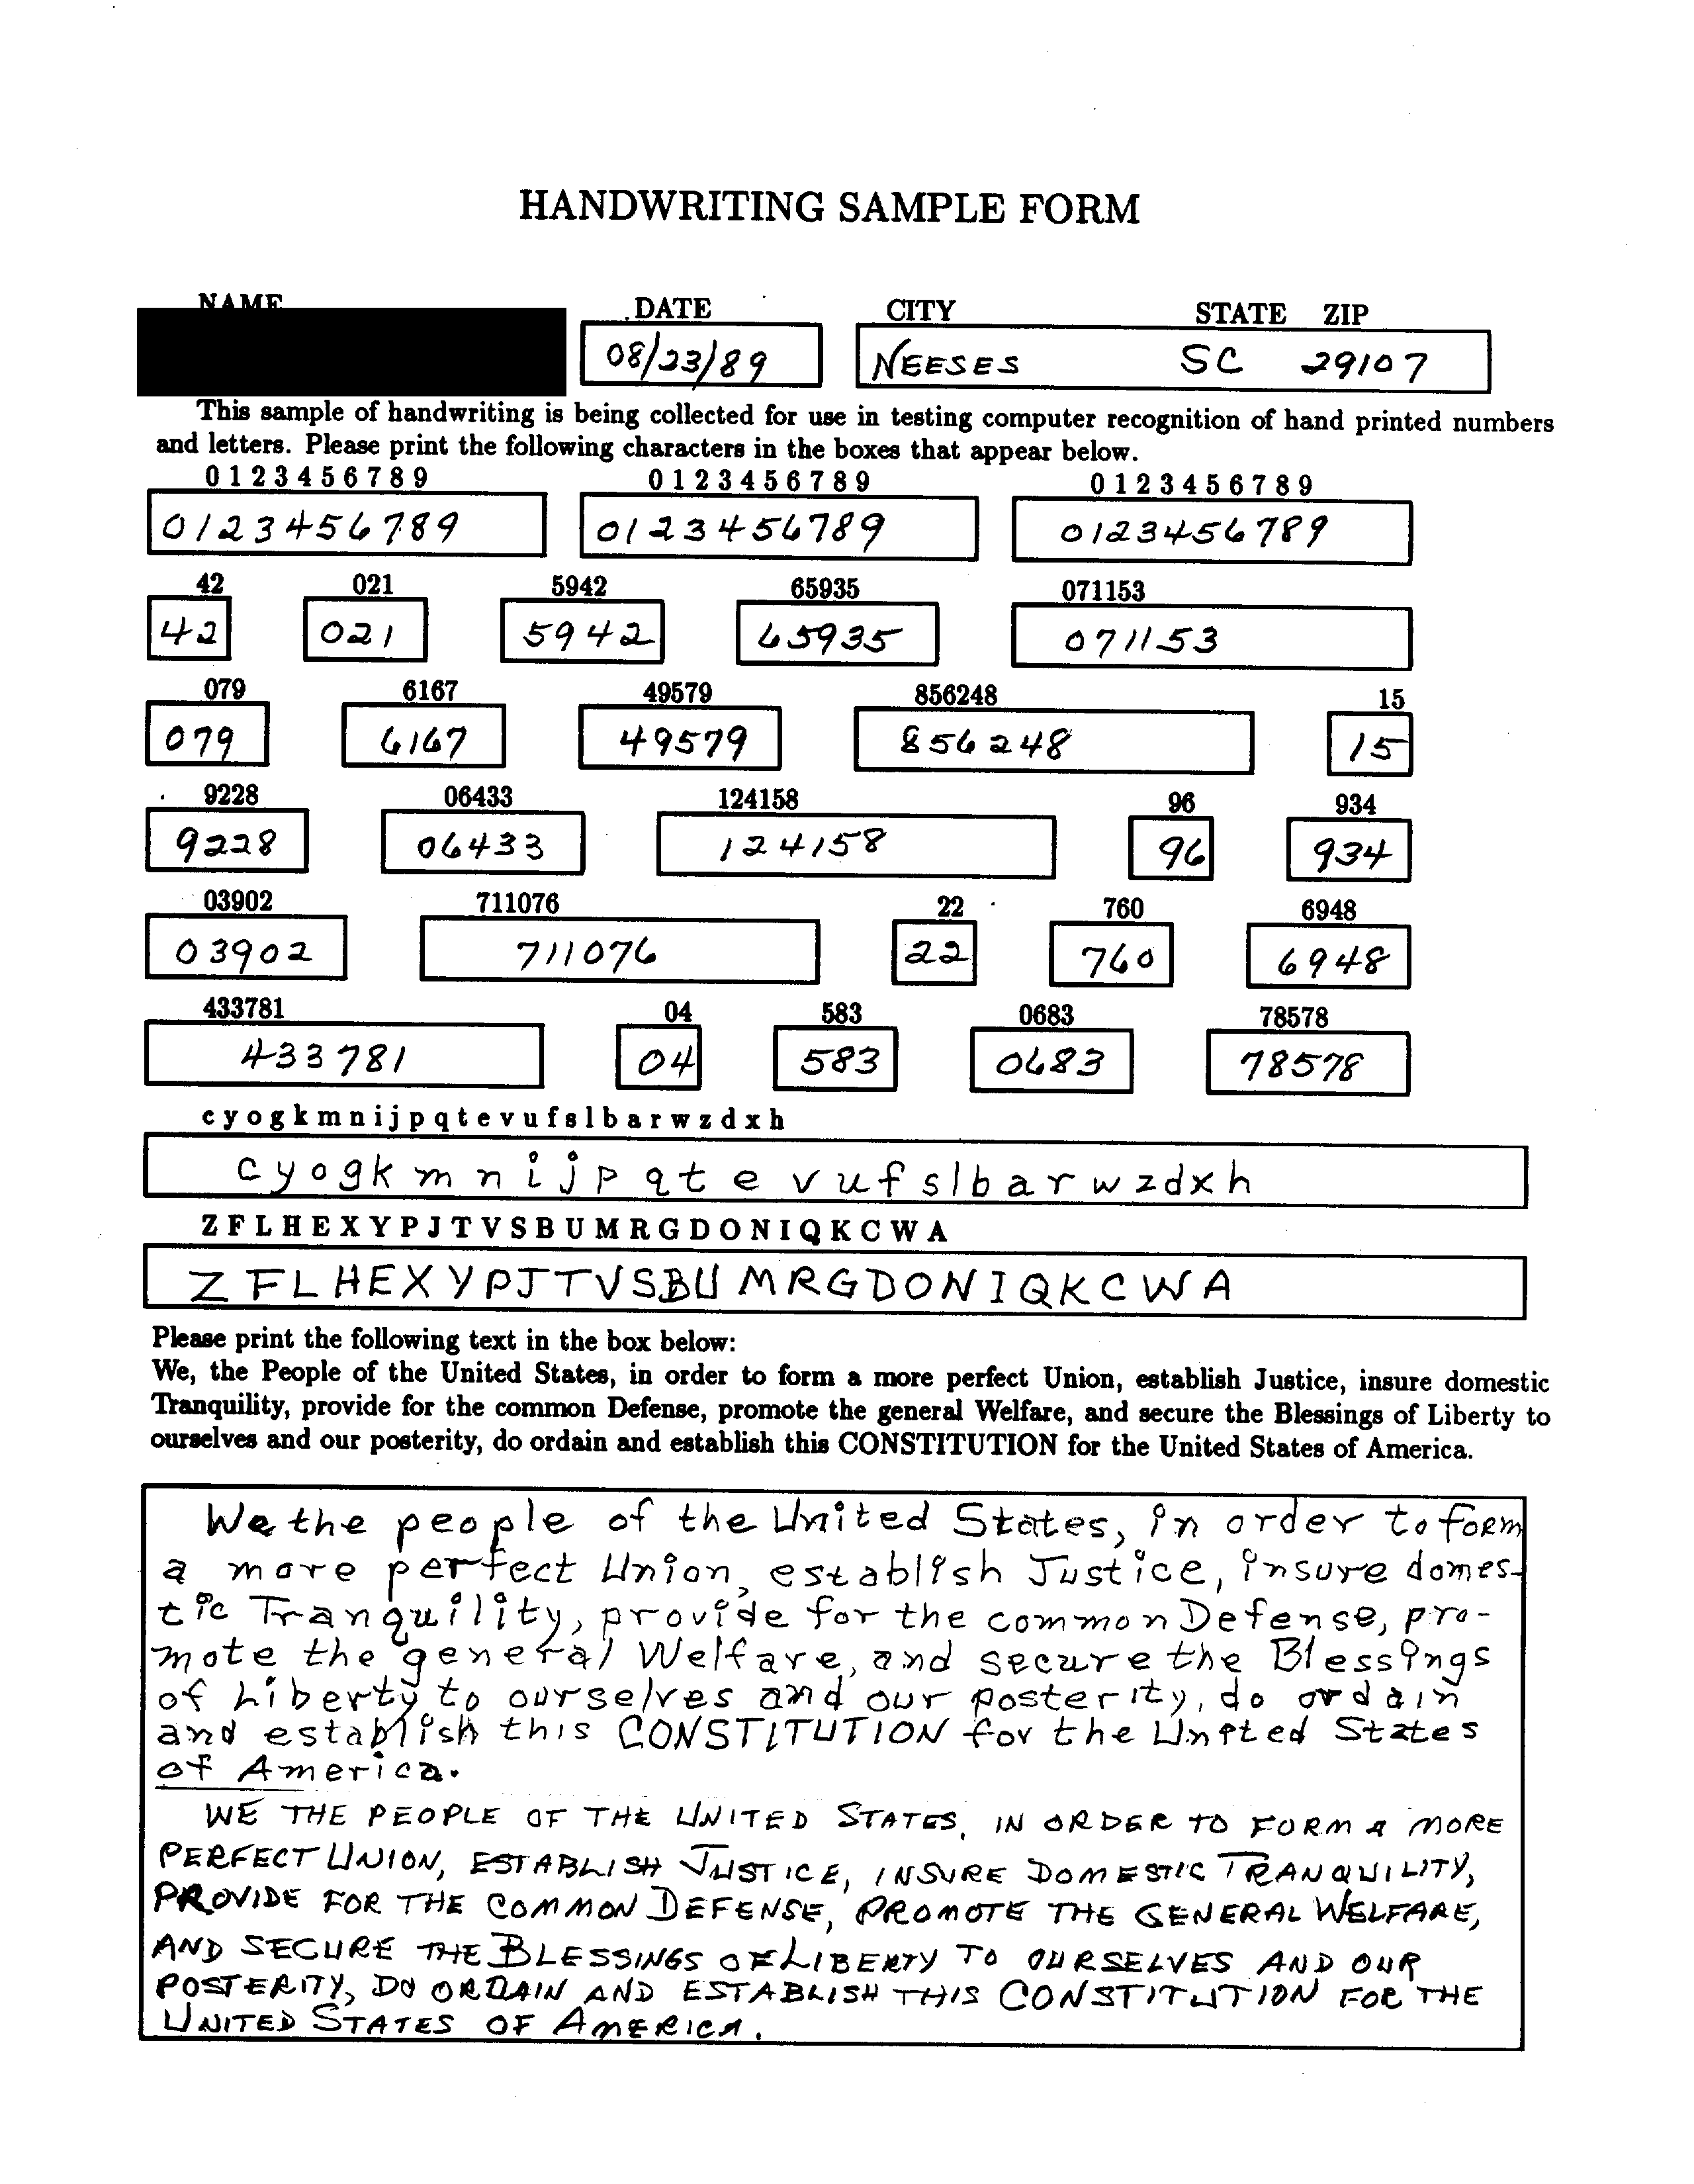 HANDWRITING SAMPLE FORM
NAME DATE CITY STATE ZIP
08/23/89 NEESES SC 29107
This sample of handwriting is being collected for use in testing computer recognition of hand printed numbers
and letters. Please print the following characters in the boxes that appear below.
0 1 2 3 4 5 6 7 8 9 0 1 2 3 4 5 6 7 8 9 0 1 2 3 4 5 6 7 8 9
0123456789 0123456789 0123456789
42 021 5942 65935 071153
42 021 5942 65935 071153
079 6167 49579 856248 15
079 6167 49579 856248 15
9228 06433 124158 96 934
9228 06433 124158 96 934
03902 711076 22 760 6948
03902 711076 22 760 6948
433781 04 583 0683 78578
433781 04 583 0683 78578
c y o g k m n i j p q t e v u f s l b a r w z d x h
c y o g k m n i j p q t e v u f s l b a r w z d x h
Z F L H E X Y P J T V S B U M R G D O N I Q K C W A
Z F L H E X Y P J T V S B U M R G D O N I Q K C W A
Please print the following text in the box below:
We, the People of the United States, in order to form a more perfect Union, establish Justice, insure domestic
Tranquility, provide for the common Defense, promote the general Welfare, and secure the Blessings of Liberty to
ourselves and our posterity, do ordain and establish this CONSTITUTION for the United States of America.
We the people of the United States, in order to form
a more perfect Union, establish Justice, insure domes-
tic Tranquility, provide for the common Defense, pro-
mote the general Welfare, and secure the Blessings
of Liberty to ourselves and our posterity, do ordain
and establish this CONSTITUTION for the United States
of America.
WE THE PEOPLE OF THE UNITED STATES, IN ORDER TO FORM A MORE
PERFECT UNION, ESTABLISH JUSTICE, INSURE DOMESTIC TRANQUILITY,
PROVIDE FOR THE COMMON DEFENSE, PROMOTE THE GENERAL WELFARE,
AND SECURE THE BLESSINGS OF LIBERTY TO OURSELVES AND OUR
POSTERITY, DO ORDAIN AND ESTABLISH THIS CONSTITUTION FOR THE
UNITED STATES OF AMERICA.